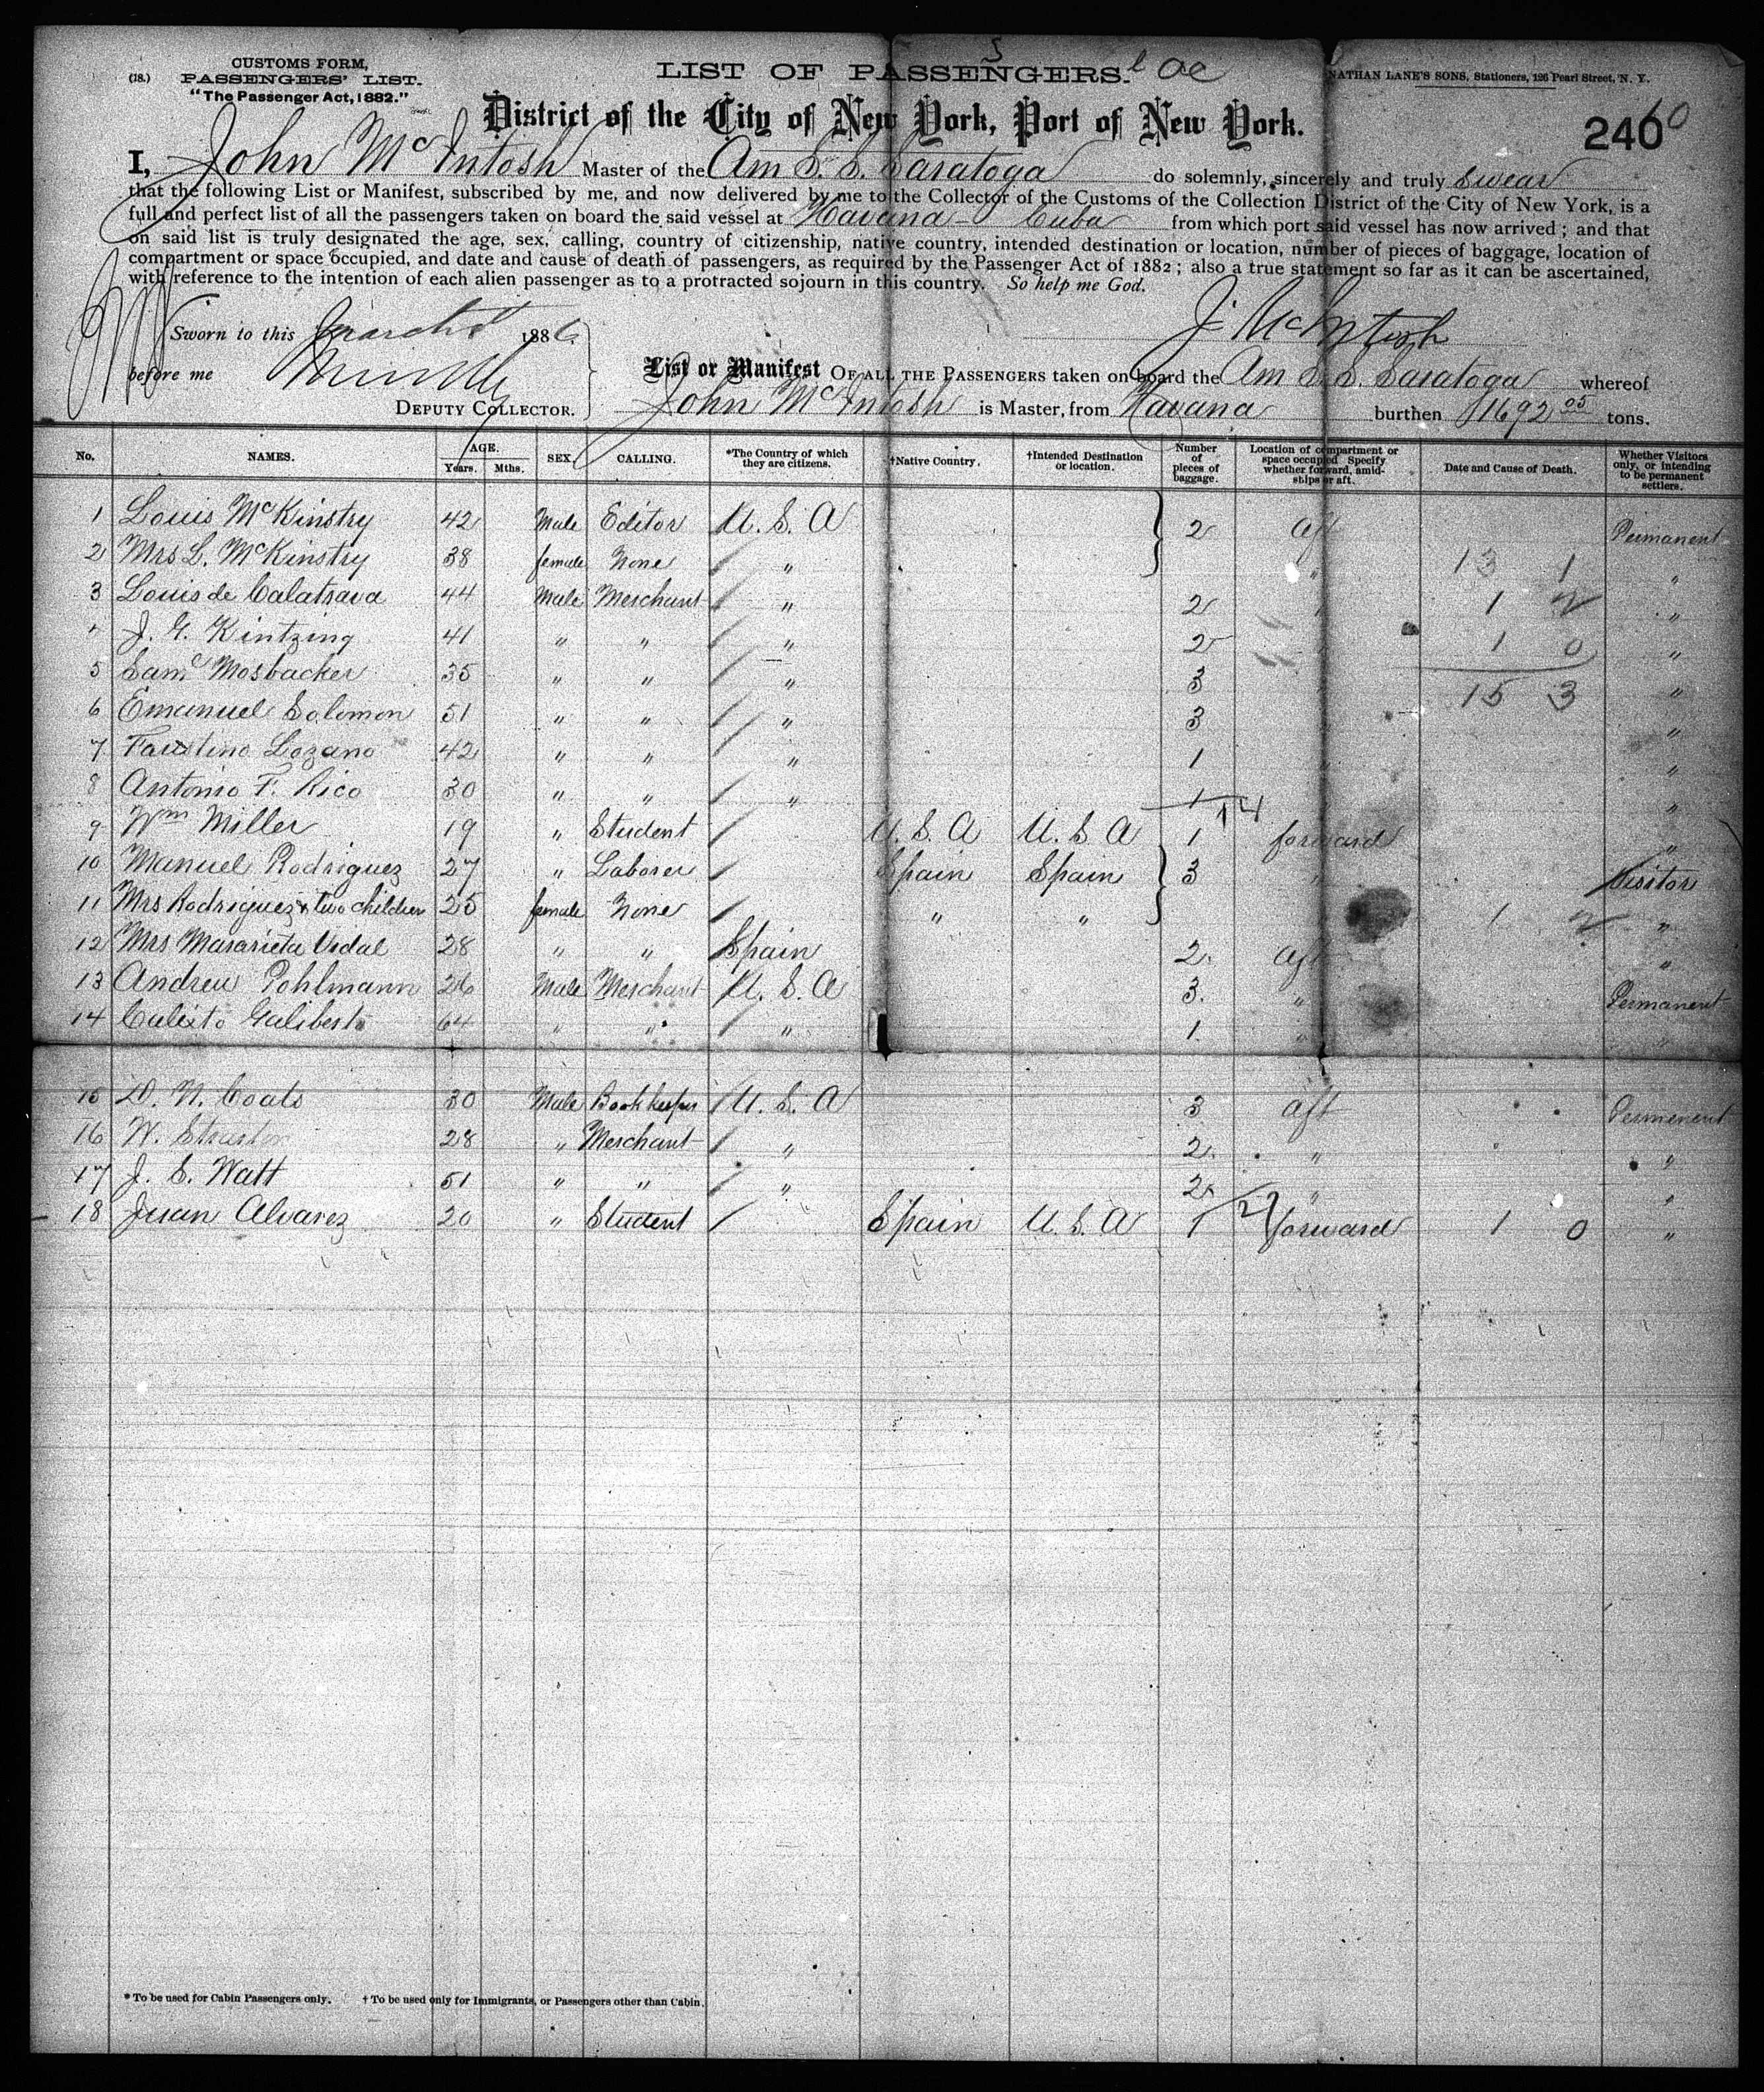 CUSTOMS FORM,
(18.) PASSENGERS' LIST.
"The Passenger Act, 1882."
LIST OF PASSENGERS.
NATHAN LANE'S SONS, Stationers, 126 Pearl Street, N. Y.
District of the City of New York, Port of New York.
240
I, John McIntosh Master of the Am S. S. Saratoga do solemnly, sincerely and truly swear
that the following List or Manifest, subscribed by me, and now delivered by me to the Collector of the Customs of the Collection District of the City of New York, is a
full and perfect list of all the passengers taken on board the said vessel at Havana Cuba from which port said vessel has now arrived; and that
on said list is truly designated the age, sex, calling, country of citizenship, native country, intended destination or location, number of pieces of baggage, location of
compartment or space occupied, and date and cause of death of passengers, as required by the Passenger Act of 1882; also a true statement so far as it can be ascertained,
with reference to the intention of each alien passenger as to a protracted sojourn in this country. So help me God.
Sworn to this 1886
J McIntosh
before me
DEPUTY COLLECTOR.
List or Manifest OF ALL THE PASSENGERS taken on board the Am S. S. Saratoga whereof
John McIntosh is Master, from Havana burthen 1692 05 tons.
No. NAMES. AGE. Years. Mths. SEX. CALLING. *The Country of which they are citizens. †Native Country. †Intended Destination or location. Number of pieces of baggage. Location of compartment or space occupied Specify whether forward, amidships or aft. Date and Cause of Death. Whether Visitors only, or intending to be permanent settlers.
1 Louis McKinstry 42 Male Editor U. S. A 2 aft Permanent
2 Mrs L. McKinstry 38 female None " " 13 1 "
3 Louis de Calatrava 44 Male Merchant " 2 " 1 2 "
4 J. G. Kintzing 41 " " " 2 " 1 0 "
5 Saml Mosbacker 35 " " " 3 " 15 3 "
6 Emanuel Solomon 51 " " " 3 " "
7 Faustino Lozano 42 " " " 1 " "
8 Antonio F. Rico 30 " " " 1 14 "
9 Wm Miller 19 " Student U. S. A U. S. A 1 forward "
10 Manuel Rodriguez 27 " Laborer Spain Spain 3 " Visitor
11 Mrs Rodriguez & two children 25 female None " " 1 2 "
12 Mrs Mararieta Vidal 28 " " Spain 2 aft "
13 Andrew Pohlmann 26 Male Merchant U. S. A 3. " Permanent
14 Calixto Galibesto 64 " " " 1 " "
15 D. N. Coats 30 Male Bookkeeper U. S. A 3 aft Permenent
16 W. 28 " Merchant " 2 " "
17 J. S. Watt 51 " " " 2 " "
18 Juan Alvarez 20 " Student Spain U. S. A 1 forward 1 0 "
* To be used for Cabin Passengers only. † To be used only for Immigrants, or Passengers other than Cabin.